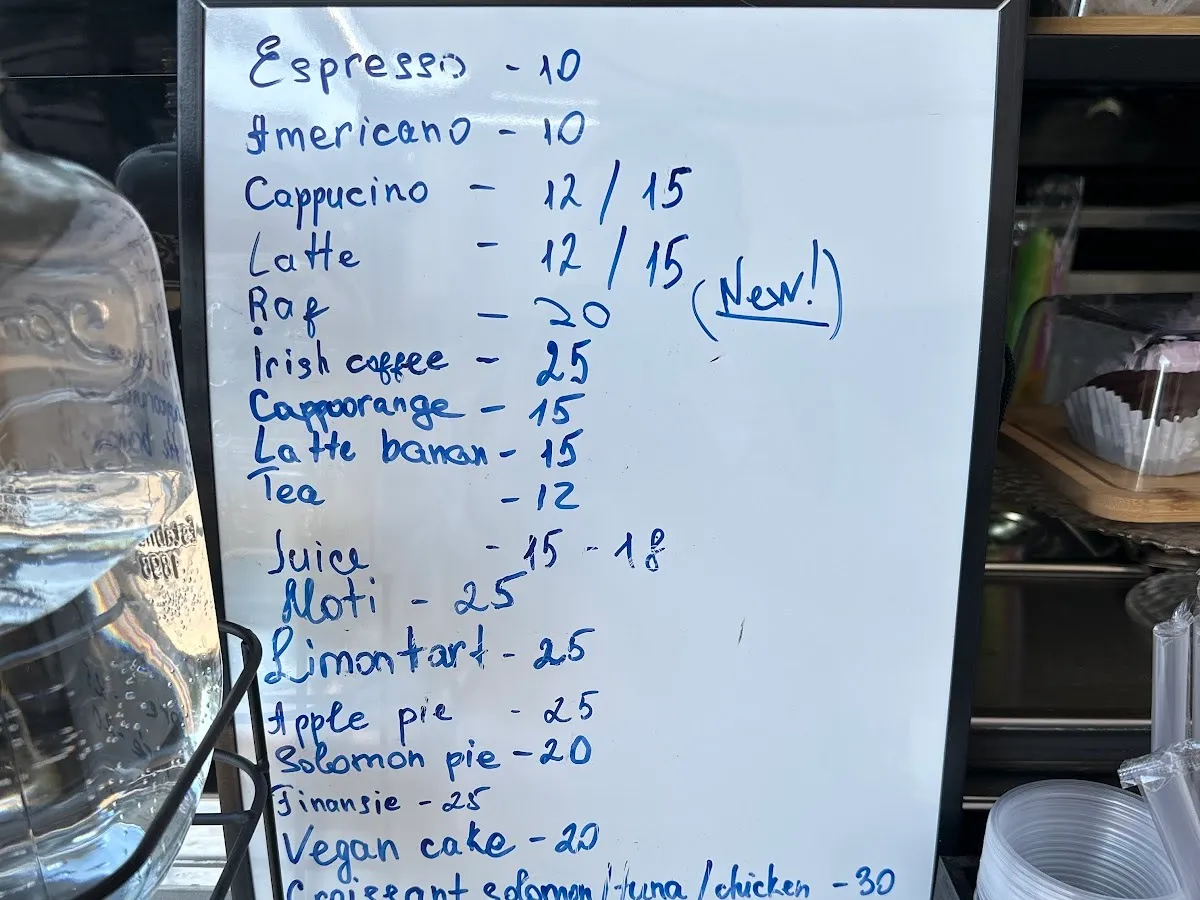 Espresso - 10
Americano - 10
Cappucino - 12 / 15
Latte - 12 / 15
(New!)
Raf - 20
Irish coffee - 25
Cappoorange - 15
Latte banan - 15
Tea - 12
Juice - 15 - 18
Moti - 25
Limontart - 25
Apple pie - 25
Solomon pie - 20
Finansie - 25
Vegan cake - 20
Croissant solomon / tuna / chicken - 30
1898